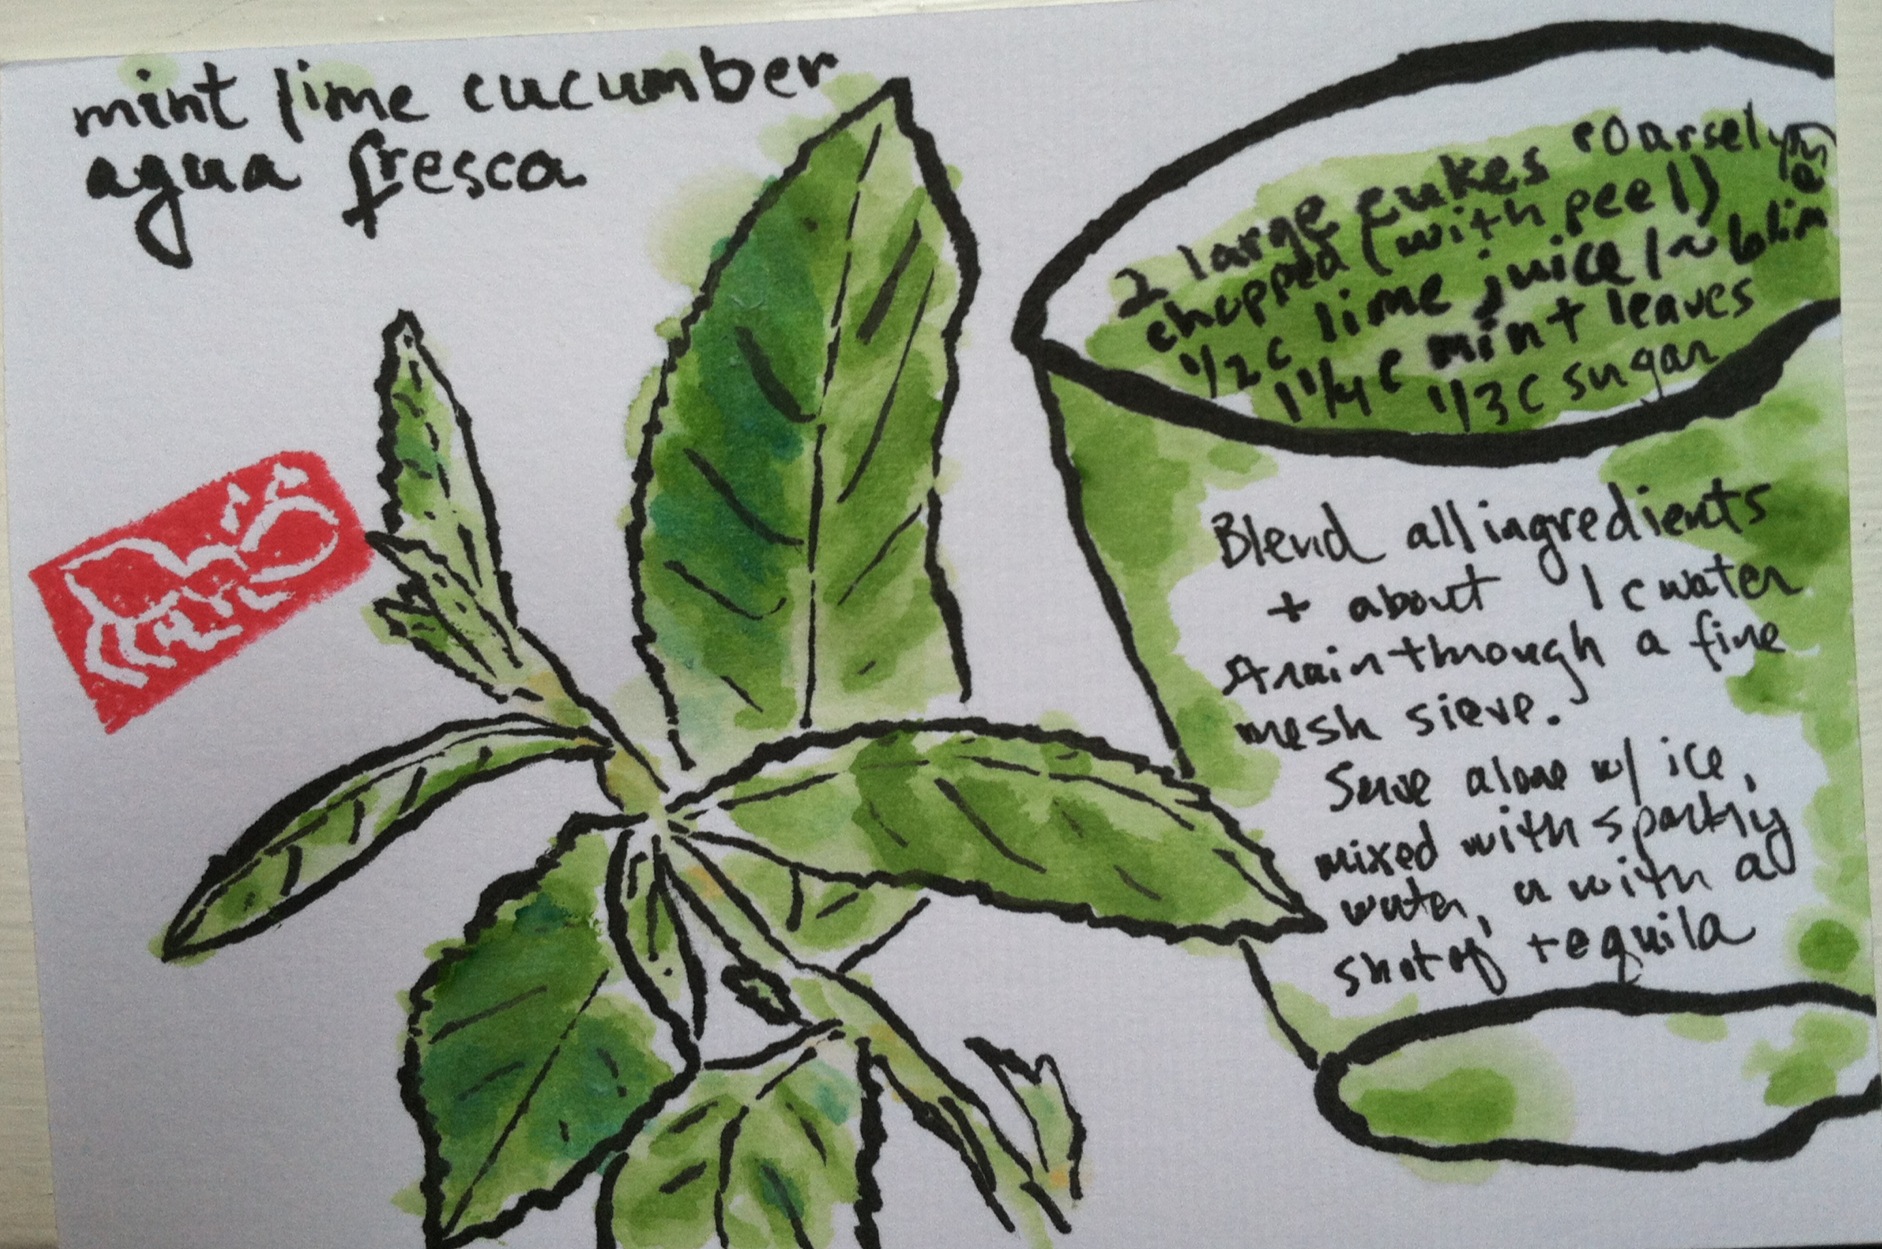 mint lime cucumber
agua fresca
2 large cukes coarsely
chopped (with peel)
1/2 c lime juice (~ 6 lim
1 1/4 c mint leaves
1/3 c sugar
Blend all ingredients
+ about 1 c water
strain through a fine
mesh sieve.
Serve alone w/ ice,
mixed with sparkly
water, or with a
shot of tequila